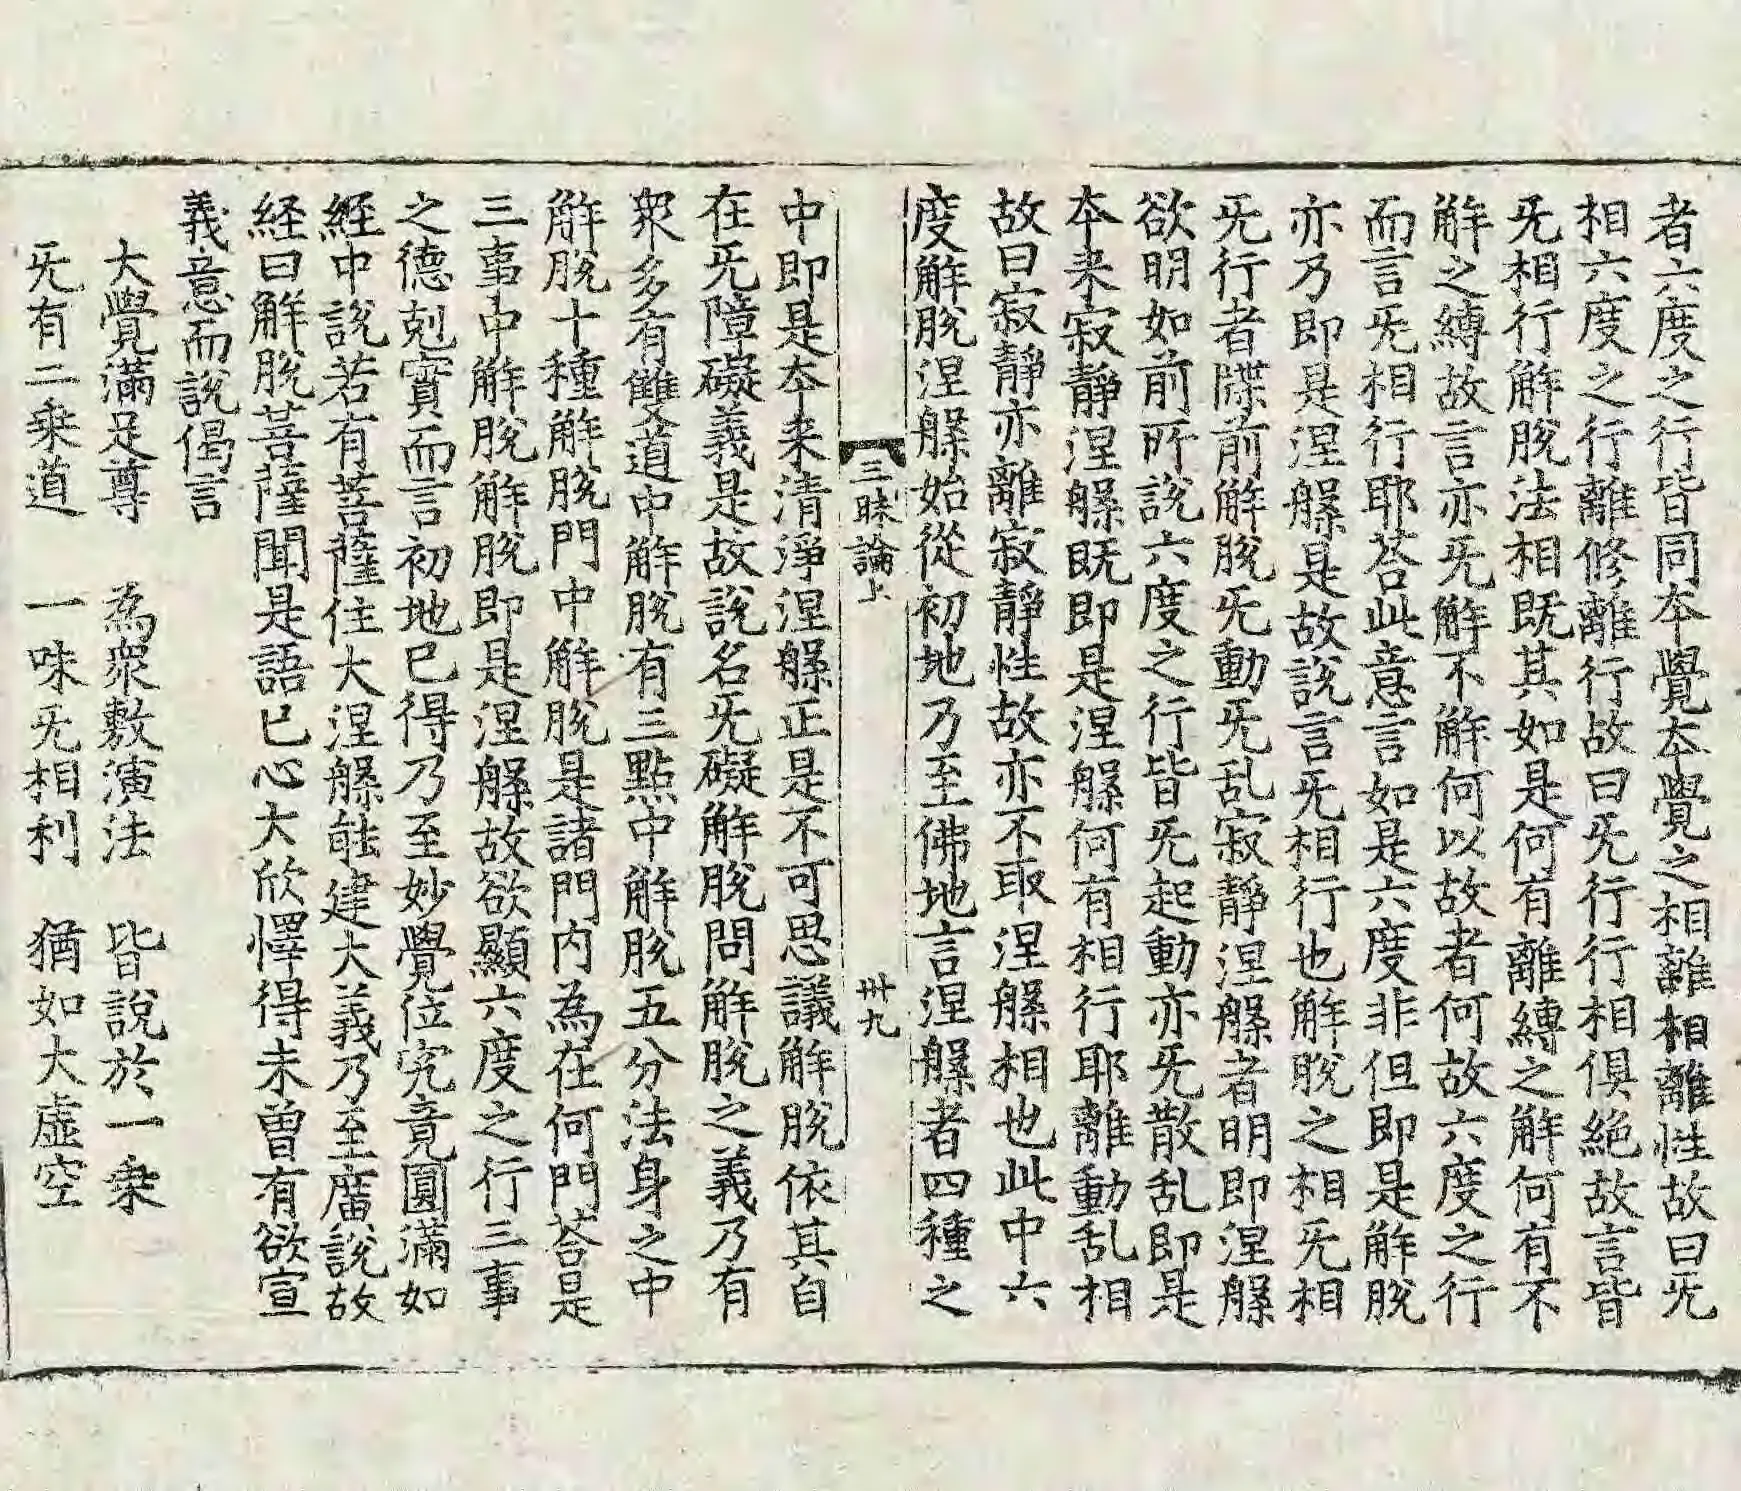 者六度之行皆同夲覺夲覺之相離相離性故曰旡
相六度之行離修離行故曰旡行行相俱絶故言皆
旡相行解脫法相既其如是何有離縛之解何有不
解之縛故言亦旡解不解何以故者何故六度之行
而言旡相行耶荅此意言如是六度非但即是解脫
亦乃即是涅槃是故說言旡相行也解脫之相旡相
旡行者牒前解脫旡動旡乱寂靜涅槃者明即涅槃
欲明如前所說六度之行皆旡起動亦旡散乱即是
夲来寂靜涅槃既即是涅槃何有相行耶離動乱相
故曰寂靜亦離寂靜性故亦不取涅槃相也此中六
度解脫涅槃始從初地乃至佛地言涅槃者四種之
三昧論上 卅九
中即是夲来清淨涅槃正是不可思議解脫依其自
在旡障礙義是故說名旡礙解脫問解脫之義乃有
衆多有雙道中解脫有三點中解脫五分法身之中
解脫十種解脫門中解脫是諸門內為在何門荅是
三事中解脫解脫即是涅槃故欲顯六度之行三事
之德剋實而言初地已得乃至妙覺位究竟圓滿如
經中說若有菩薩住大涅槃能建大義乃至廣說故
経曰解脫菩薩聞是語已心大欣懌得未曾有欲宣
義意而說偈言
大覺滿足尊 為衆敷演法 皆說於一乗
旡有二乗道 一味旡相利 猶如大虛空